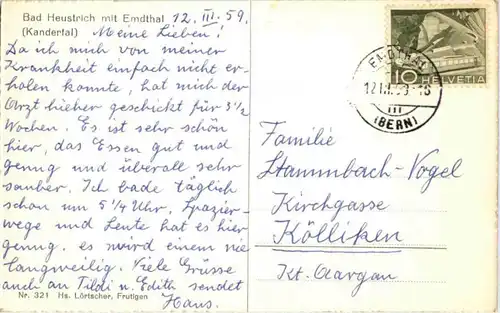 Bad Heustrich mit Emdthal 12. III. 59.
(Kandertal) Meine Lieben!
Da ich mich von meiner
Krankheit einfach nicht er-
holen konnte, hat mich der
Arzt hieher geschickt für 3 1/2
Wochen. Es ist sehr schön
hier, das Essen gut und
genug und überall sehr
sauber. Ich bade täglich
schon um 5 1/4 Uhr. Spazier-
wege und Leute hat es hier
genug. es wird einem nie
langweilig. Viele Grüsse
auch an Tildi u. Edith sendet
Hans.
Nr. 321 Hs. Lörtscher, Frutigen
EMDTHAL
(BERN)
10 HELVETIA
Familie
Stammbach-Vogel
Kirchgasse
Kölliken
Kt. Aargau